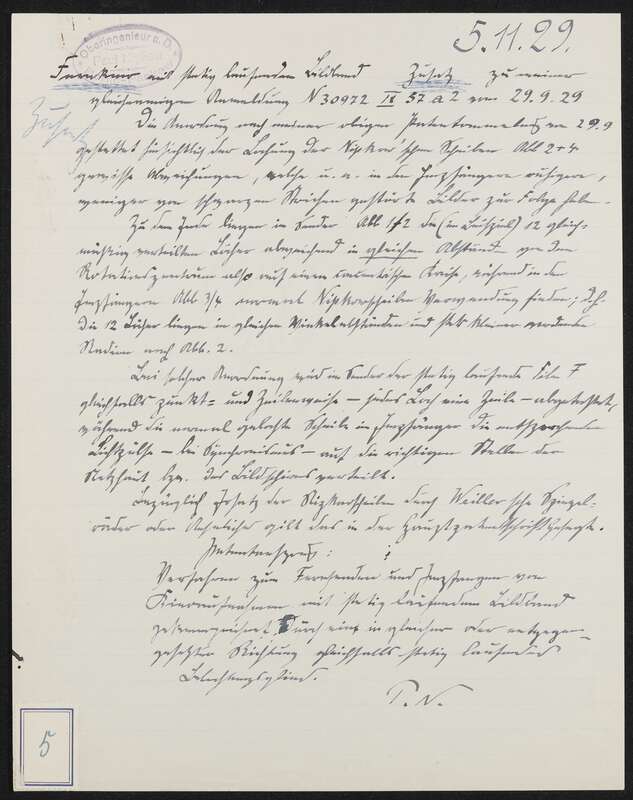 5.11.29.
Oberingenieur a. D.
Fernkino mit stetig laufendem Bildband Zusatz zu meiner
gleichnamigen Anmeldung N 30972 IX 57a2 vom 29.9.29
Zusatz
Die Anordnung nach meiner obigen Patentanmeldung vom 29.9
gestattet hinsichtlich der Lochung der Nipkow'schen Scheiben Abb 2+4
gewisse Abweichungen, welche u. a. in den Empfängern ruhigere,
weniger von schwarzen Strichen gestörte Bilder zur Folge haben.
Zu dem Ende liegen im Sender Abb 1/2 die (im Beispiel) 12 gleich-
mäßig verteilten Löcher abweichend in gleichem Abstand von dem
Rotationszentrum also auf einem Kreise, während in den
Empfängern Abb 3/4 normale Nipkowscheiben Verwendung finden; d.h.
die 12 Löcher liegen in gleichen Winkelabständen und stets kleiner werdenden
Radien nach Abb. 2.
Bei solcher Anordnung wird im Sender der stetig laufende Film F
gleichfalls punkt- und zeilenweise – jedes Loch eine Zeile – abgetastet,
während die normal gelochte Scheibe im Empfänger die entsprechenden
Lichtpulse – bei Synchronismus – auf die richtigen Stellen der
Netzhaut bzw. des Bildschirms verteilt.
Bezüglich Ersatz der Nipkowscheiben durch Weiller'sche Spiegel-
räder oder Aehnliches gilt das in der Hauptpatentschrift Gesagte.
Patentanspruch:
Verfahren zum Fernsenden und Empfangen von
Kinoaufnahmen mit stetig laufendem Bildband
gekennzeichnet durch ein in gleicher oder entgegen-
gesetzter Richtung gleichfalls stetig laufendes
P. N.
5